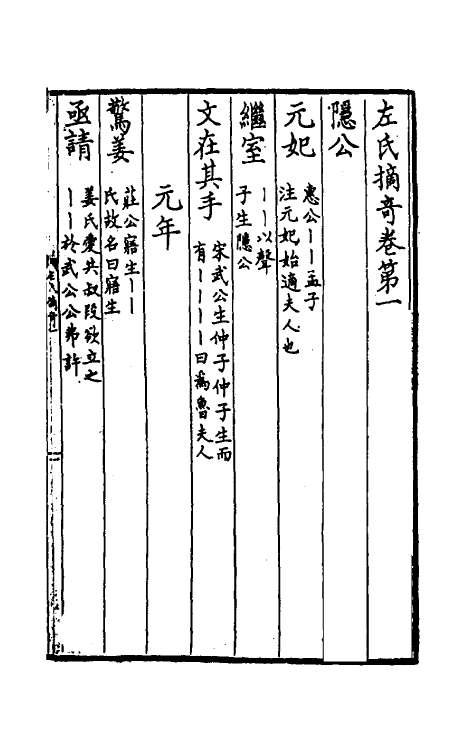 左氏摘奇卷第一
隱公
元妃
惠公｜｜孟子
注元妃始適夫人也
繼室
｜｜以聲
子生隱公
文在其手
宋武公生仲子仲子生而
有｜｜｜｜曰爲魯夫人
元年
驚姜
莊公寤生｜｜
氏故名曰寤生
亟請
姜氏愛共叔段欲立之
｜｜於武公公弗許